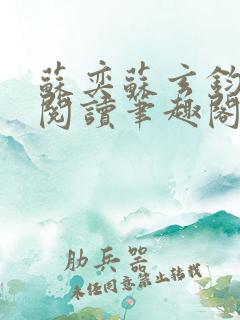 蘇奕蘇玄鈞
閱讀筆趣閣
肋兵器
未經同意禁止轉載